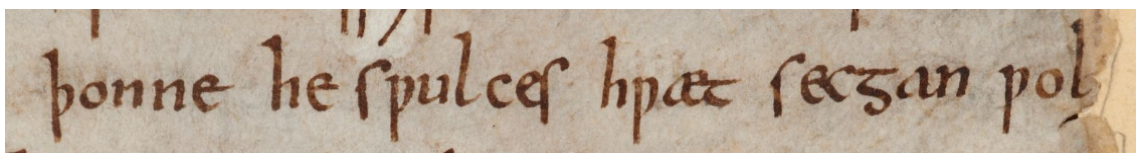 þonne he sƿulces hƿæt secgan ƿol